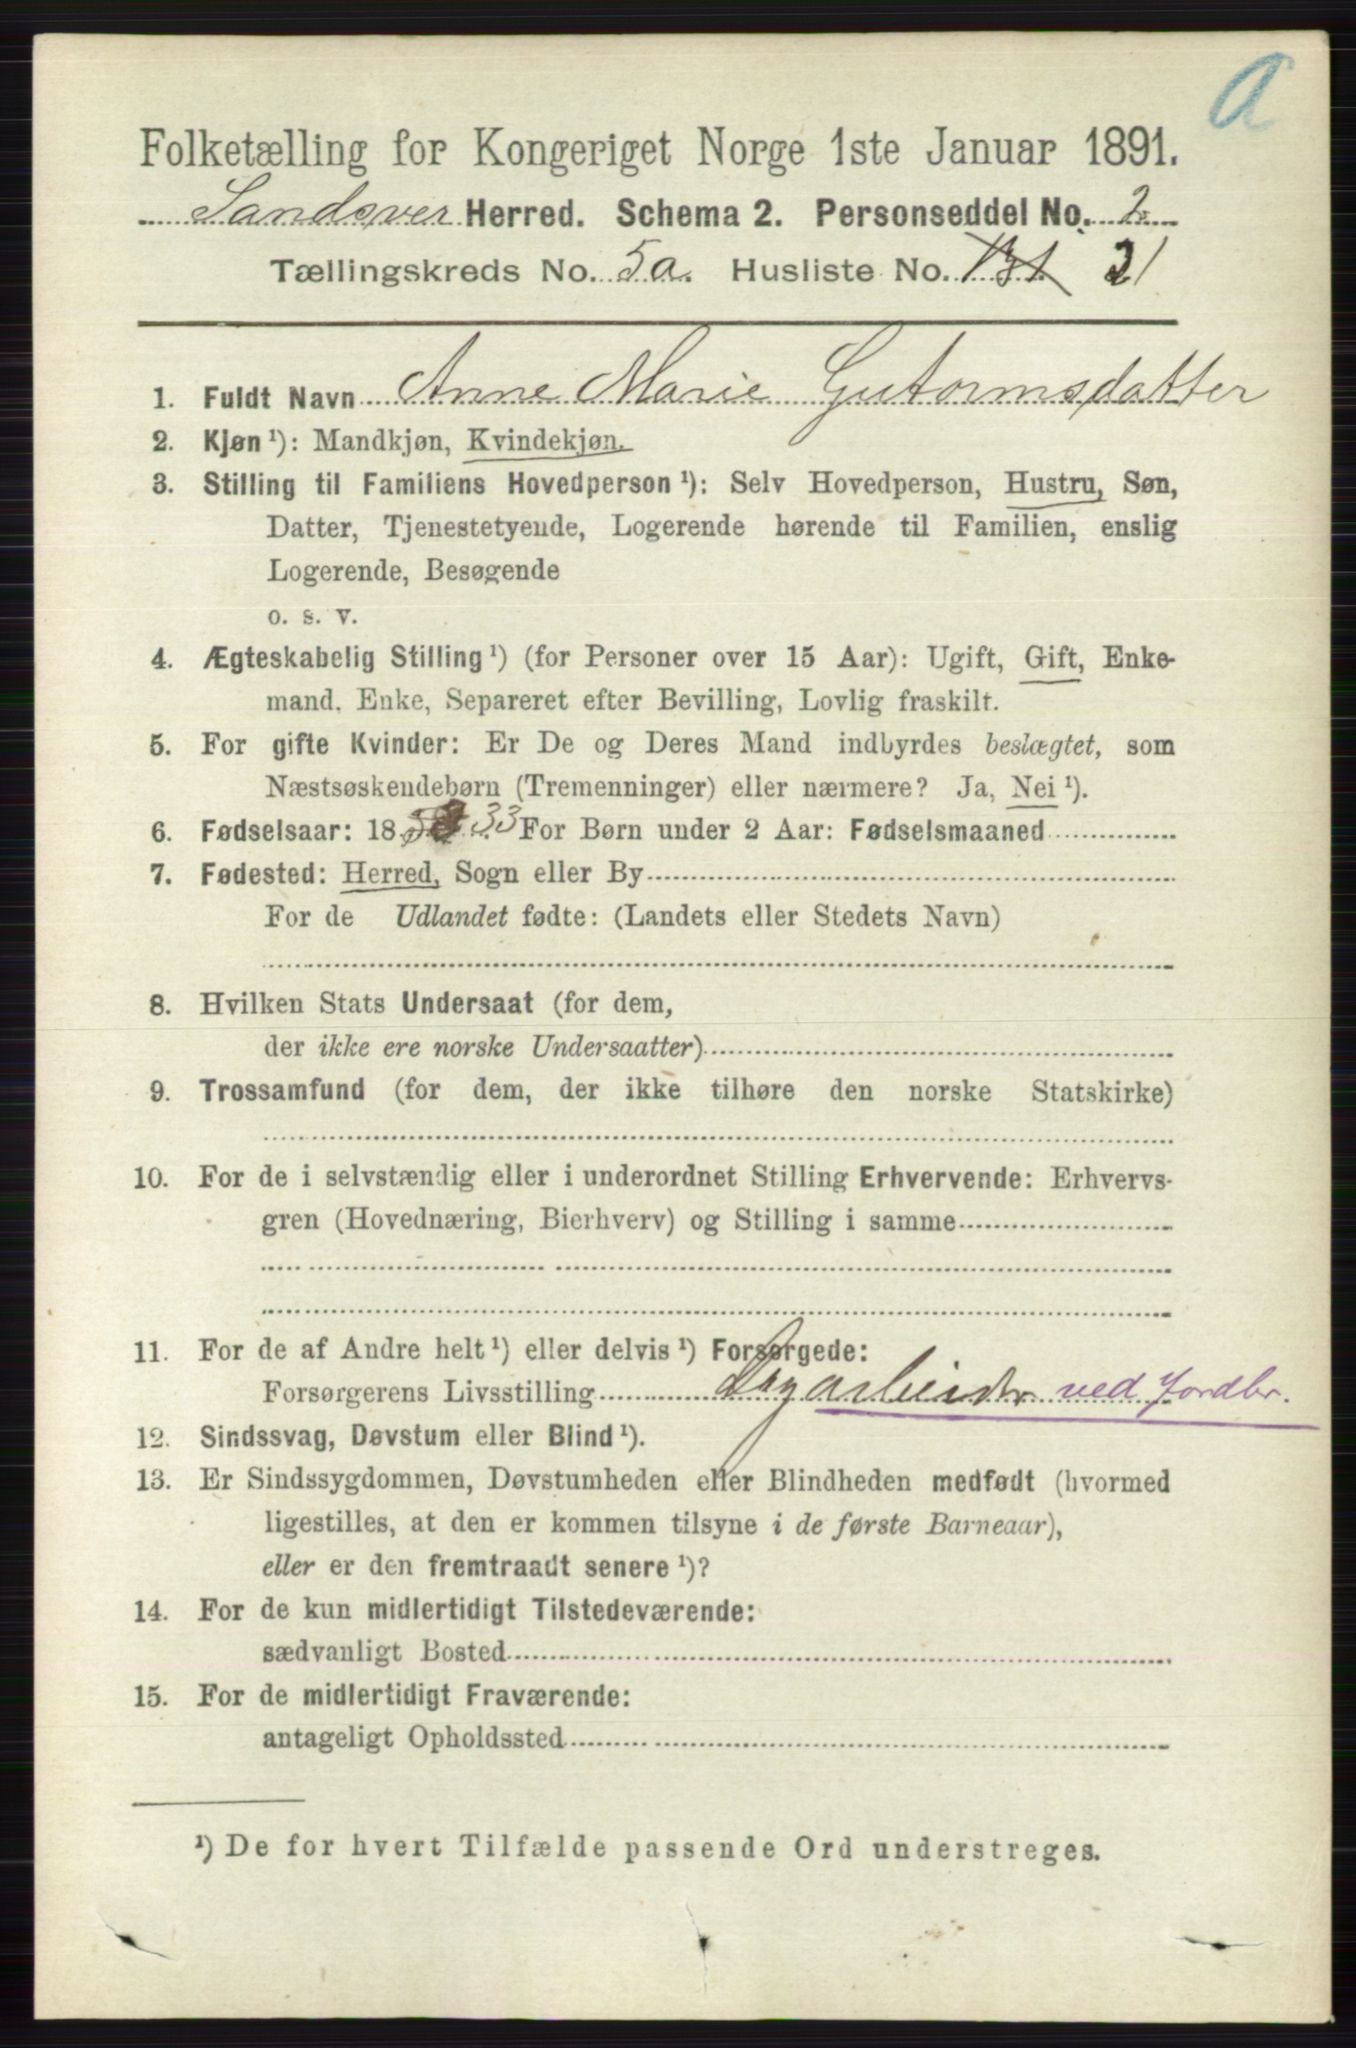 a
Folketælling for Kongeriget Norge 1ste Januar 1891.
Sandsver Herred. Schema 2. Personseddel No. 2
Tællingskreds No. 5a. Husliste No. 131 21
1. Fuldt Navn Anne Marie Gutormsdatter
2. Kjøn ¹): Mandkjøn, Kvindekjøn.
3. Stilling til Familiens Hovedperson ¹): Selv Hovedperson, Hustru, Søn,
Datter, Tjenestetyende, Logerende hørende til Familien, enslig
Logerende, Besøgende
o. s. v.
4. Ægteskabelig Stilling ¹) (for Personer over 15 Aar): Ugift, Gift, Enke-
mand, Enke, Separeret efter Bevilling, Lovlig fraskilt.
5. For gifte Kvinder: Er De og Deres Mand indbyrdes beslægtet, som
Næstsøskendebørn (Tremenninger) eller nærmere? Ja, Nei ¹).
6. Fødselsaar: 18 33 For Børn under 2 Aar: Fødselsmaaned
7. Fødested: Herred, Sogn eller By
For de Udlandet fødte: (Landets eller Stedets Navn)
8. Hvilken Stats Undersaat (for dem,
der ikke ere norske Undersaatter)
9. Trossamfund (for dem, der ikke tilhøre den norske Statskirke)
10. For de i selvstændig eller i underordnet Stilling Erhvervende: Erhvervs-
gren (Hovednæring, Bierhverv) og Stilling i samme
11. For de af Andre helt ¹) eller delvis ¹) Forsørgede:
Forsørgerens Livsstilling Dagarbeider ved Jordbr.
12. Sindssvag, Døvstum eller Blind ¹).
13. Er Sindssygdommen, Døvstumheden eller Blindheden medfødt (hvormed
ligestilles, at den er kommen tilsyne i de første Barneaar),
eller er den fremtraadt senere ¹)?
14. For de kun midlertidigt Tilstedeværende:
sædvanligt Bosted
15. For de midlertidigt Fraværende:
antageligt Opholdssted
¹) De for hvert Tilfælde passende Ord understreges.